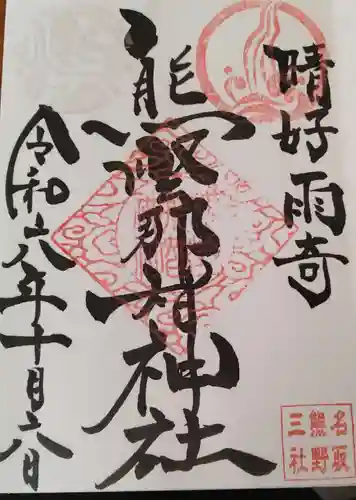 晴好雨奇
熊野那智神社
令和六年十月六日
名取
熊野
三社